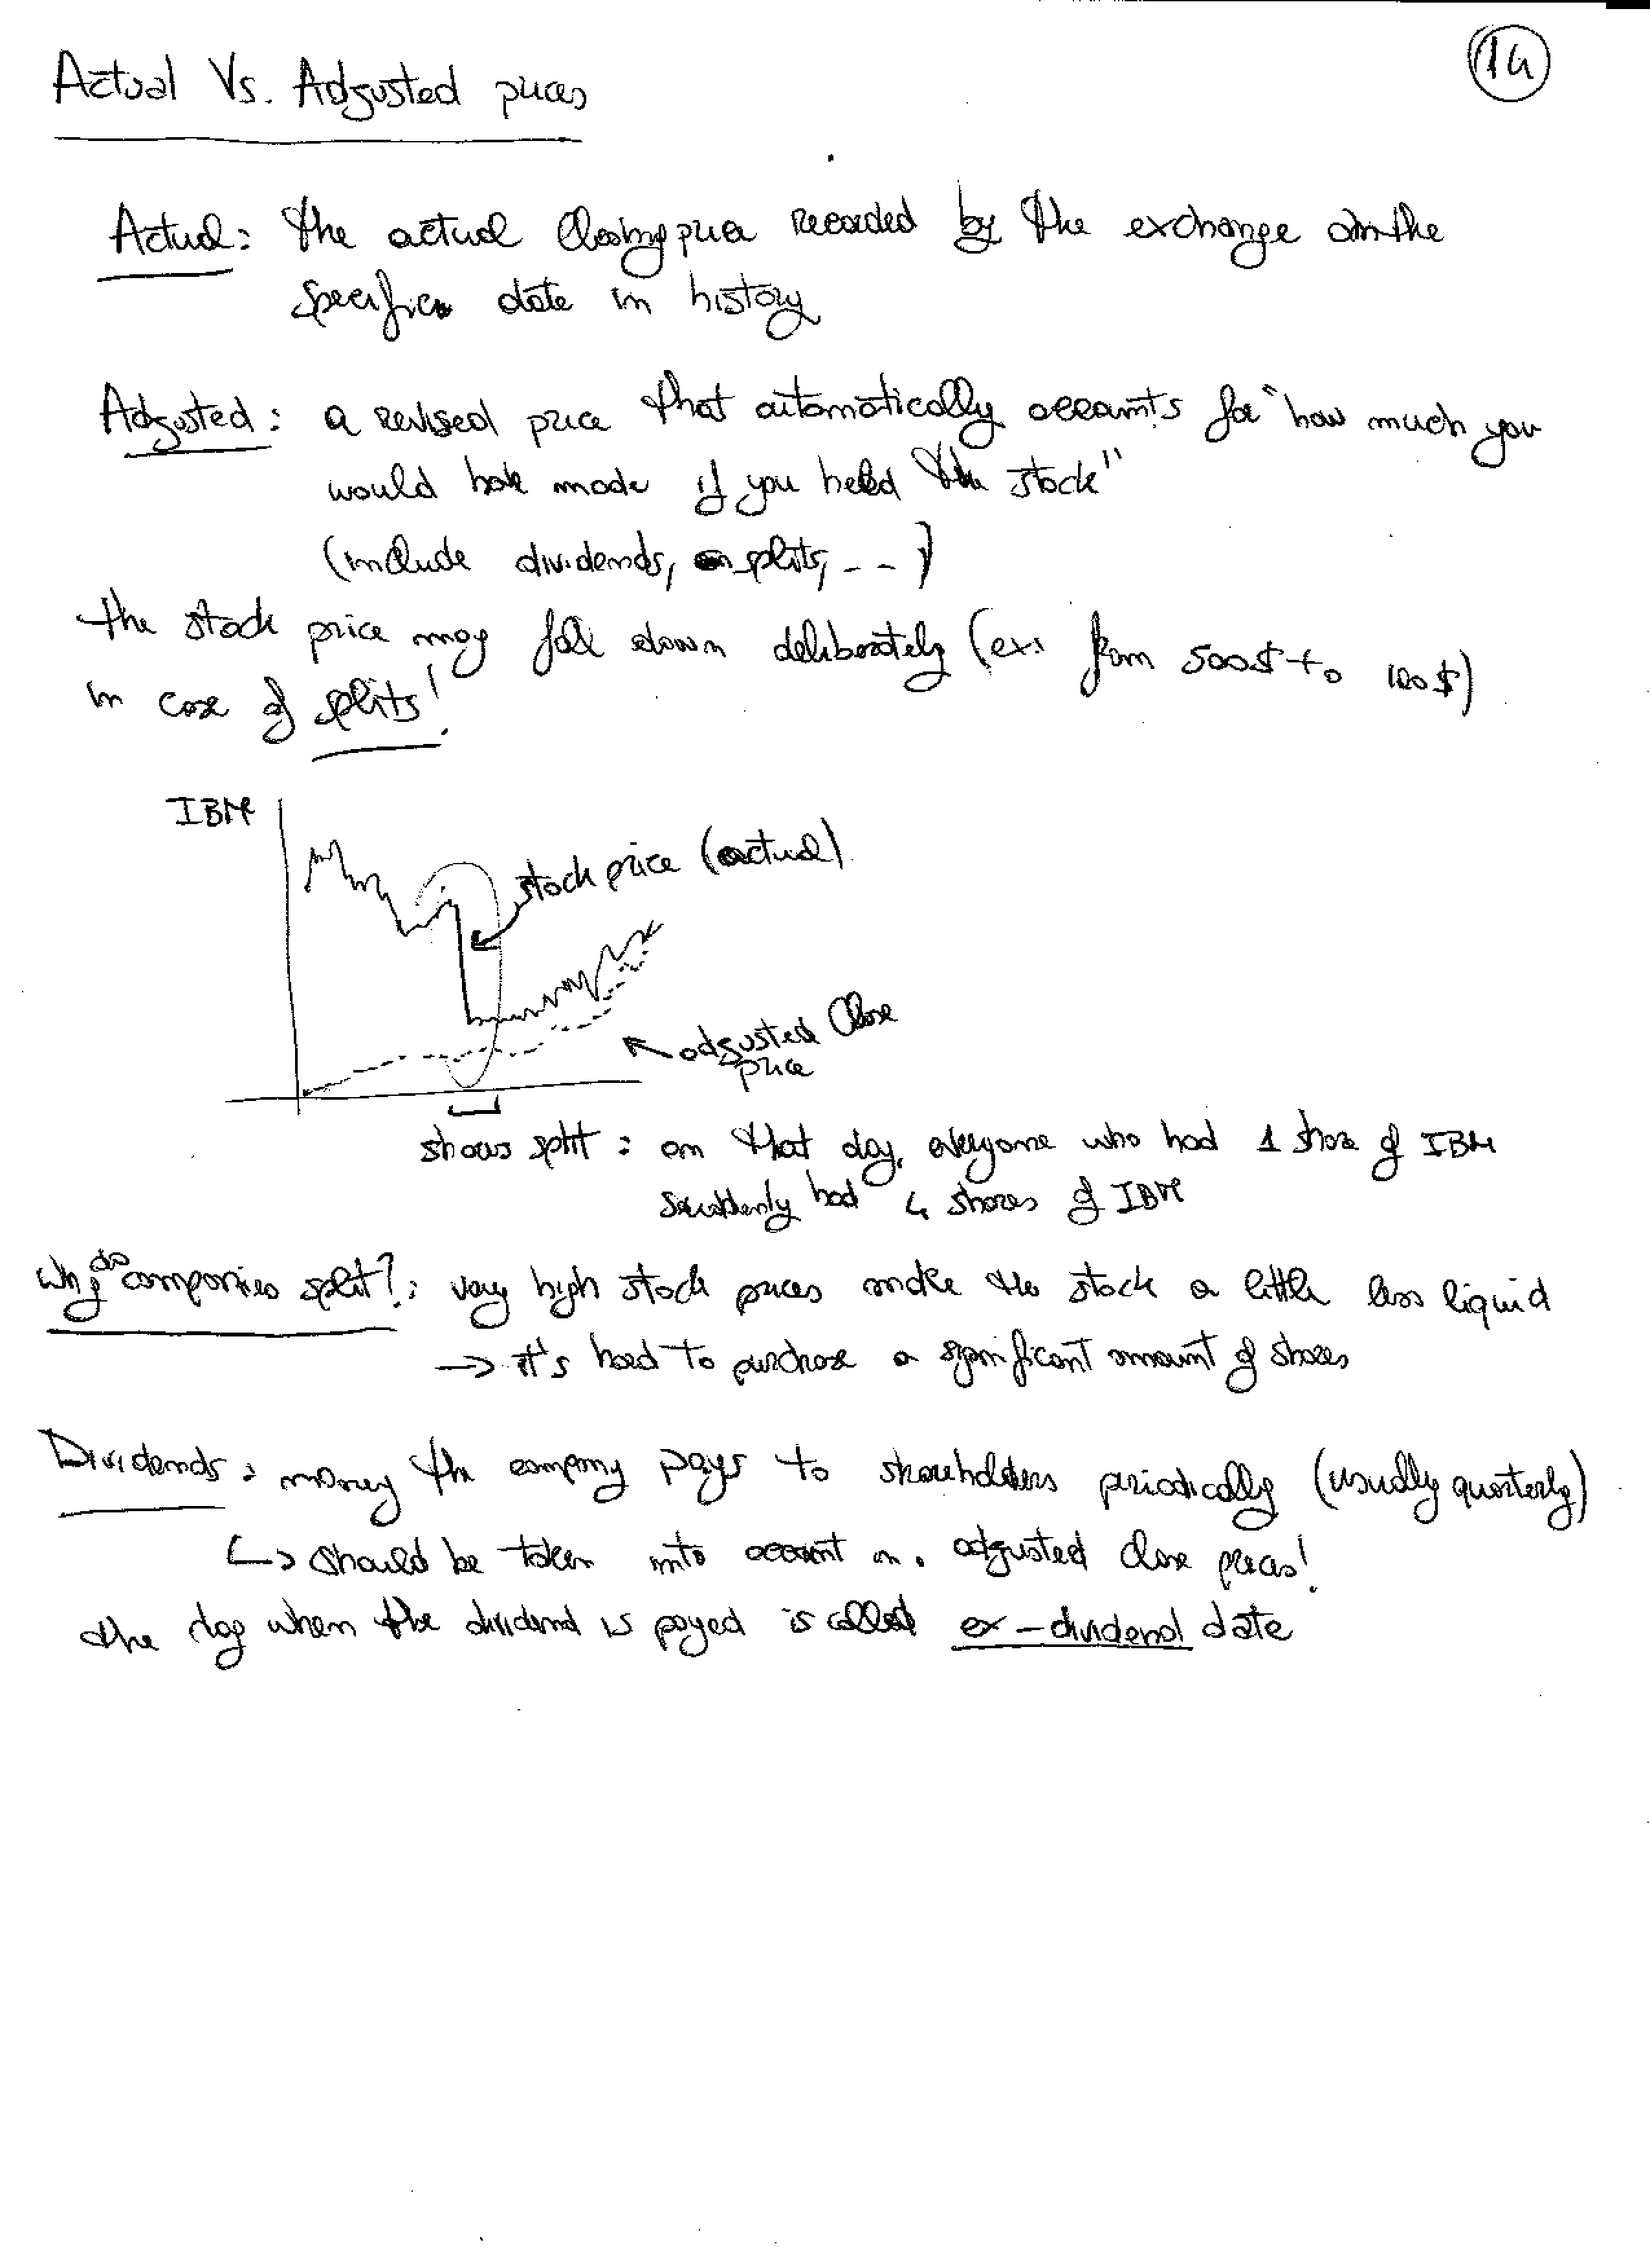 14
Actual Vs. Adjusted prices
Actual: the actual Closing price recorded by the exchange on the
specific date in history
Adjusted: a revised price that automatically accounts for "how much you
would have made if you held the stock"
(include dividends, splits, --)
the stock price may fall down deliberately (ex: from 500$ to 100$)
in case of splits!
IBM
stock price (actual)
adjusted Close
price
shows split: on that day, everyone who had 1 share of IBM
suddenly had 4 shares of IBM
Why do companies split?: very high stock prices make the stock a little less liquid
-> it's hard to purchase a significant amount of shares
Dividends: money the company pays to shareholders periodically (usually quarterly)
↳ should be taken into account in adjusted close prices!
the day when the dividend is payed is called ex-dividend date